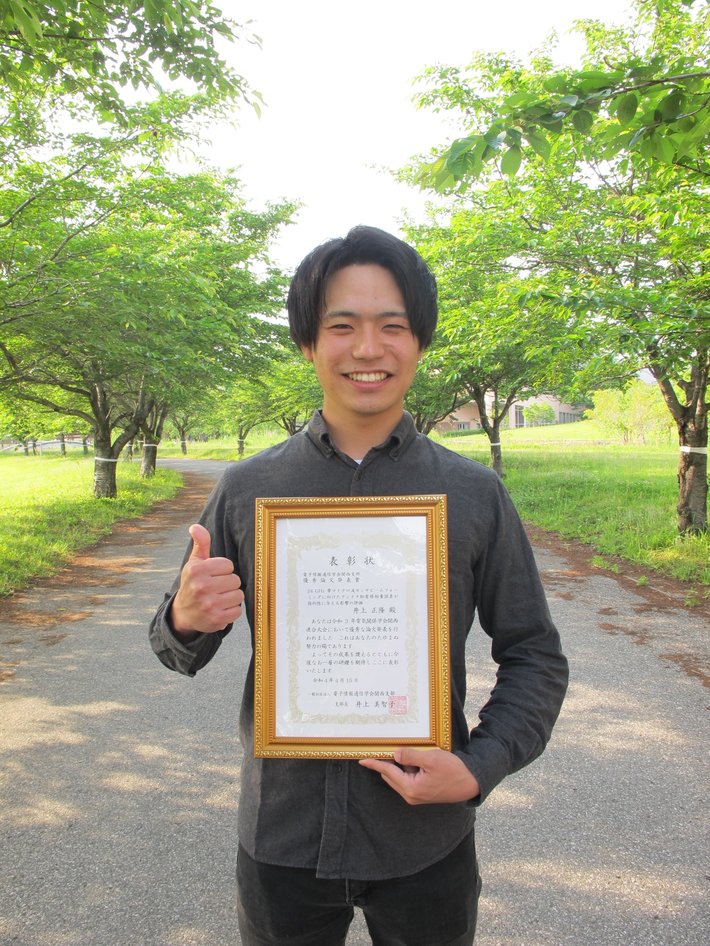 表彰状
電子情報通信学会関西支部
優秀論文発表賞
井上 正隆 殿
あなたは令和3年電気関係学会関西
連合大会において優秀な論文発表を行
われました これはあなたのたゆまぬ
努力の賜であります
よってその成果を讃えるとともに今
後なお一層の研鑽を期待しここに表彰
いたします
令和4年4月15日
一般社団法人 電子情報通信学会関西支部
支部長 井上 美智子